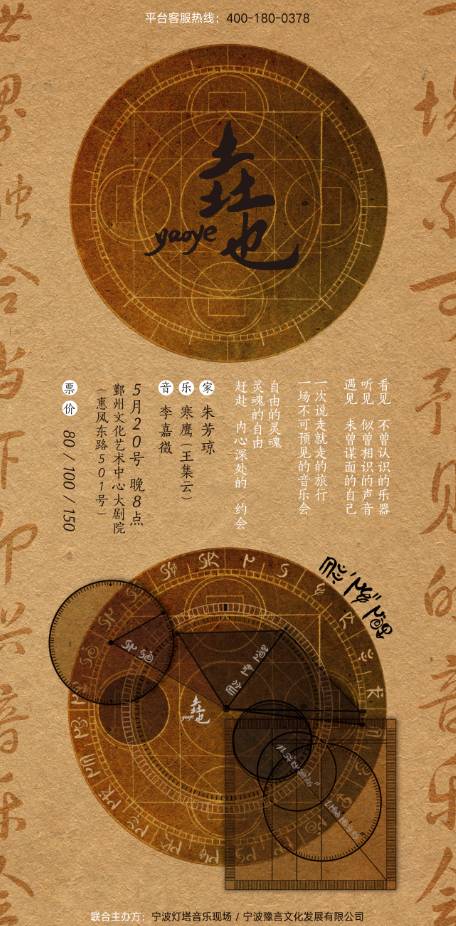 平台客服热线：400-180-0378
一场不可予见的音乐会
世界独合当下即兴音乐会
垚也
yaoye
看见 不曾认识的乐器
听见 似曾相识的声音
遇见 未曾谋面的自己
一次说走就走的旅行
一场不可预见的音乐会
自由的灵魂
灵魂的自由
赶赴 内心深处的 约会
音乐家 朱芳琼
寒鹰（王集云）
李嘉微
5月20号 晚8点
鄞州文化艺术中心大剧院
（惠风东路501号）
票价 80 / 100 / 150
垚也
联合主办方：宁波灯塔音乐现场 / 宁波豫言文化发展有限公司